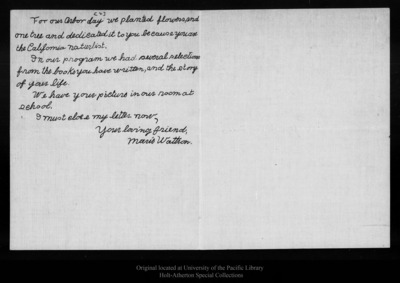 [2]
For our Arbor day we planted flowers and
one tree and dedicated it to you because you are
the California naturlist.
In our program we had several selections
from the books you have written, and the story
of your life.
We have your picture in our room at
school.
I must close my letter now,
Your loving friend,
Marie
Original located at University of the Pacific Library
Holt-Atherton Special Collections